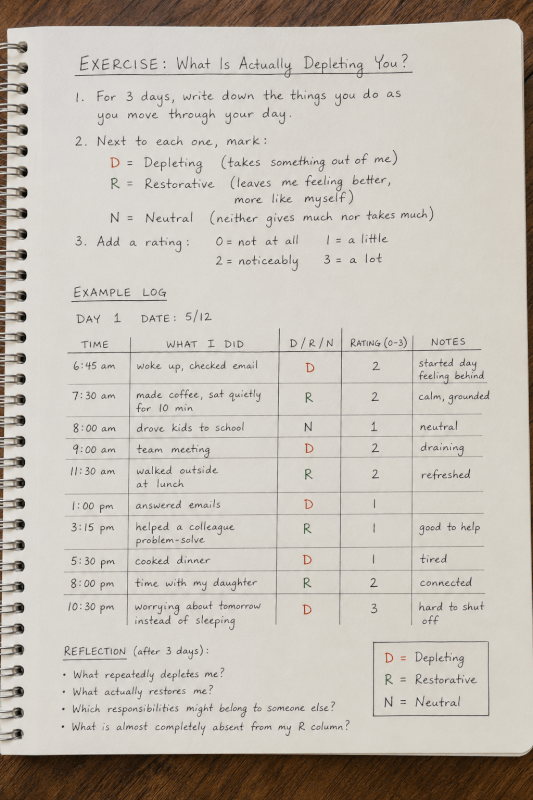 EXERCISE: What Is Actually Depleting You?
1. For 3 days, write down the things you do as
you move through your day.
2. Next to each one, mark:
D = Depleting (takes something out of me)
R = Restorative (leaves me feeling better,
more like myself)
N = Neutral (neither gives much nor takes much)
3. Add a rating: 0 = not at all 1 = a little
2 = noticeably 3 = a lot
EXAMPLE LOG
DAY 1 DATE: 5/12
TIME WHAT I DID D/R/N RATING (0-3) NOTES
6:45 am woke up, checked email D 2 started day
feeling behind
7:30 am made coffee, sat quietly R 2 calm, grounded
for 10 min
8:00 am drove kids to school N 1 neutral
9:00 am team meeting D 2 draining
11:30 am walked outside R 2 refreshed
at lunch
1:00 pm answered emails D 1
3:15 pm helped a colleague R 1 good to help
problem-solve
5:30 pm cooked dinner D 1 tired
8:00 pm time with my daughter R 2 connected
10:30 pm worrying about tomorrow D 3 hard to shut
instead of sleeping off
REFLECTION (after 3 days):
• What repeatedly depletes me?
• What actually restores me?
• Which responsibilities might belong to someone else?
• What is almost completely absent from my R column?
D = Depleting
R = Restorative
N = Neutral